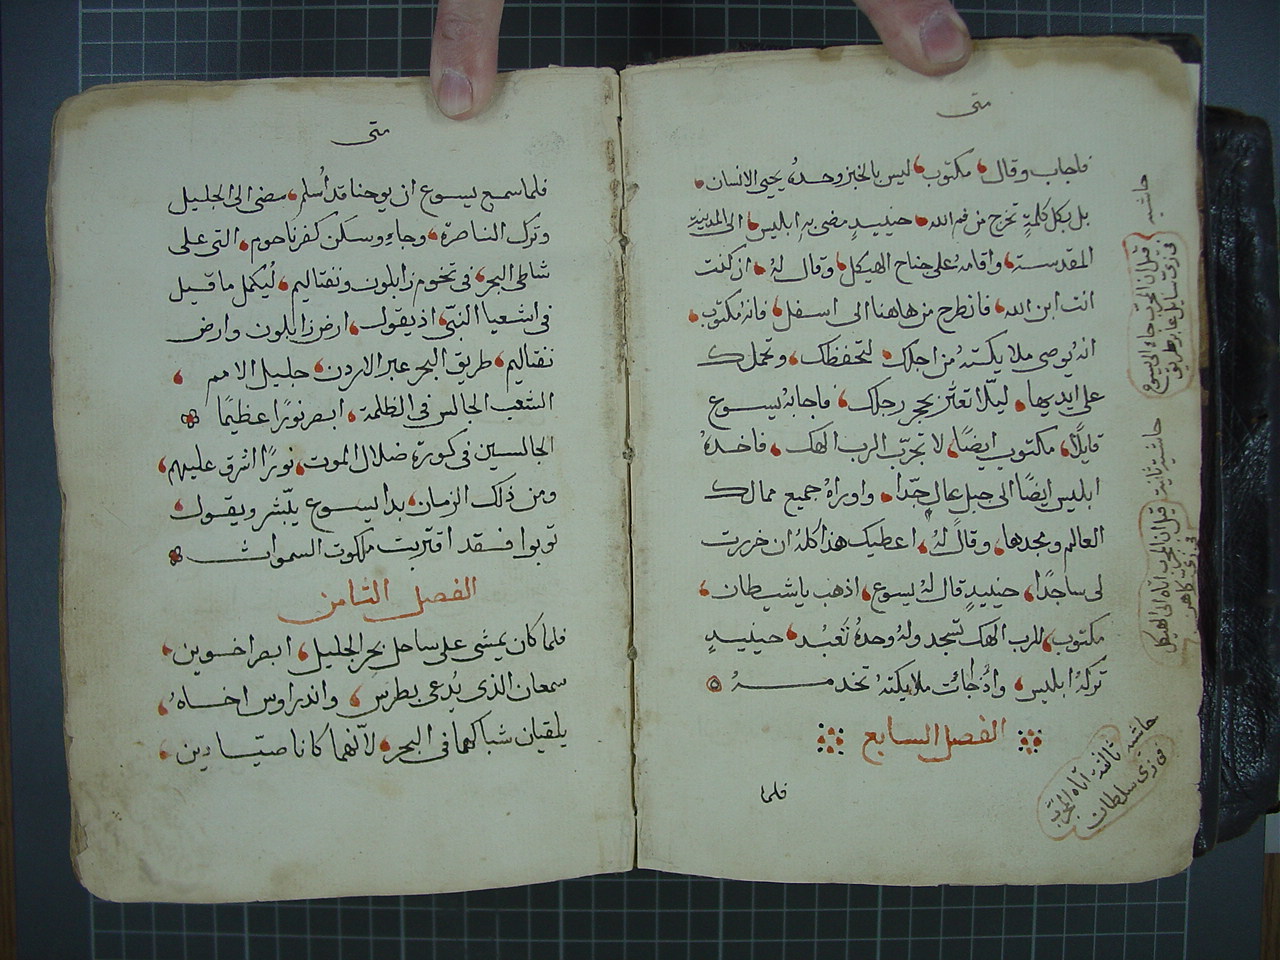 متى
فاجاب وقال مكتوب ليس بالخبز وحده يحيى الانسان
بل بكل كلمةٍ تخرج من فم الله حينيدٍ مضى به ابليس الى المدينة
المقدسة واقامهُ على جناح الهيكل وقال لهُ ان كنت
انت ابن الله فانطرح من هاهنا الى اسفل فانهُ مكتوب
انهُ يوصى ملايكتهُ من اجلك لتحفظك وتحملك
على ايديها ليلّا تعثر بحجرٍ رجلك فاجابهُ يسوع
قايلًا مكتوب ايضًا لا تجرّب الرب الهك فاخدهُ
ابليس ايضًا الى جبل عالٍ جدًّا واوراهُ جميع ممالك
العالم ومجدها وقال لهُ اعطيك هذا كلهُ ان خررت
لى ساجدًا حينيدٍ قال لهُ يسوع اذهب ياشيطان
مكتوب للرب الهك تسجد ولهُ وحدهُ تَعبُد حينيدٍ
تركهُ ابليس وادا جائت ملايكتهُ تخدمهُ
الفصل السابع
فلما
حاشيه
قيل ان المجرّب جاء الى يسوع
فى زى سايل عابر طريق
حاشية ثانية
قيل ان المجرب اتاه الى الهيكل
فى زى كاهن
حاشية ثالثة اتاه المجرّب
فى زى سلطان
متى
فلما سمع يسوع ان يوحنا قد أُسلم مضى الى الجليل
وترك الناصرة وجاءِ وسكن كفرناحوم التى على
شاطى البحر فى تخوم زابلون ونفتاليم ليُكمل ما قيل
فى اشعيا النبّى اذ يقول ارض زابلون وارض
نفتاليم طريق البحر عبر الاردن جليل الامم
الشعب الجالس فى الظلمة ابصر نورًا عظيمًا
الجالسين فى كورة ضلال الموت نورًا اشرق عليهم
ومن ذلك الزمان بدا يسوع يبّشر ويقول
توبوا فقد اقتربت ملكوت السموات
الفصل الثامن
فلما كان يمشى على ساحل بحر الجليل ابصر اخوين
سمعان الذى يُدعى بطرس واندراوس اخاهُ
يلقيان شباكهما فى البحر لانّهما كانا صيّادين